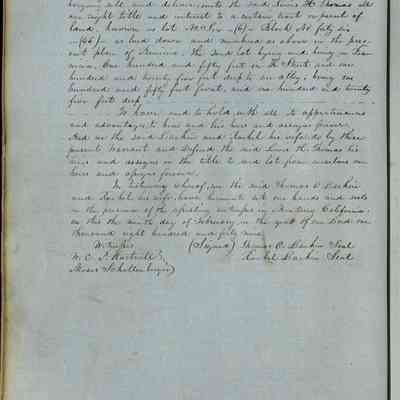 bargain sell, and deliver, unto the said Lewis H. Thomas all
our right title and interest to a certain tract or parcel of
land, known as lot No Six —(6)— Block No fifty six
—(56)— as laid down and numbered as above in the pres-
ent plan of Benicia. The said lot lying and being in Ben-
icia, One hundred and fifty feet on H Street and one
hundred and twenty five feet deep to an alley; being one
hundred and fifty feet front, and one hundred and twenty
five feet deep
To have and to hold with all its appurtenances
and advantages, to him and his heirs and assigns forever,
And we the said Larkin and Rachel his wife do by these
presents Warrant and Defend the said Lewis H. Thomas his
heirs and assigns in the title to said lot from ourselves our
heirs and assigns forever.
In testimony whereof, we the said Thomas O. Larkin
and Rachel his wife, have hereunto set our hands and seals
in the presence of the attesting witnesses in Monterey California,
on this the ninth day of February in the year of our Lord one
thousand eight hundred and forty nine
Witnesses (Signed) Thomas O. Larkin Seal
W. E. P. Hartnell Rachel Larkin Seal
Moses Schallenberger